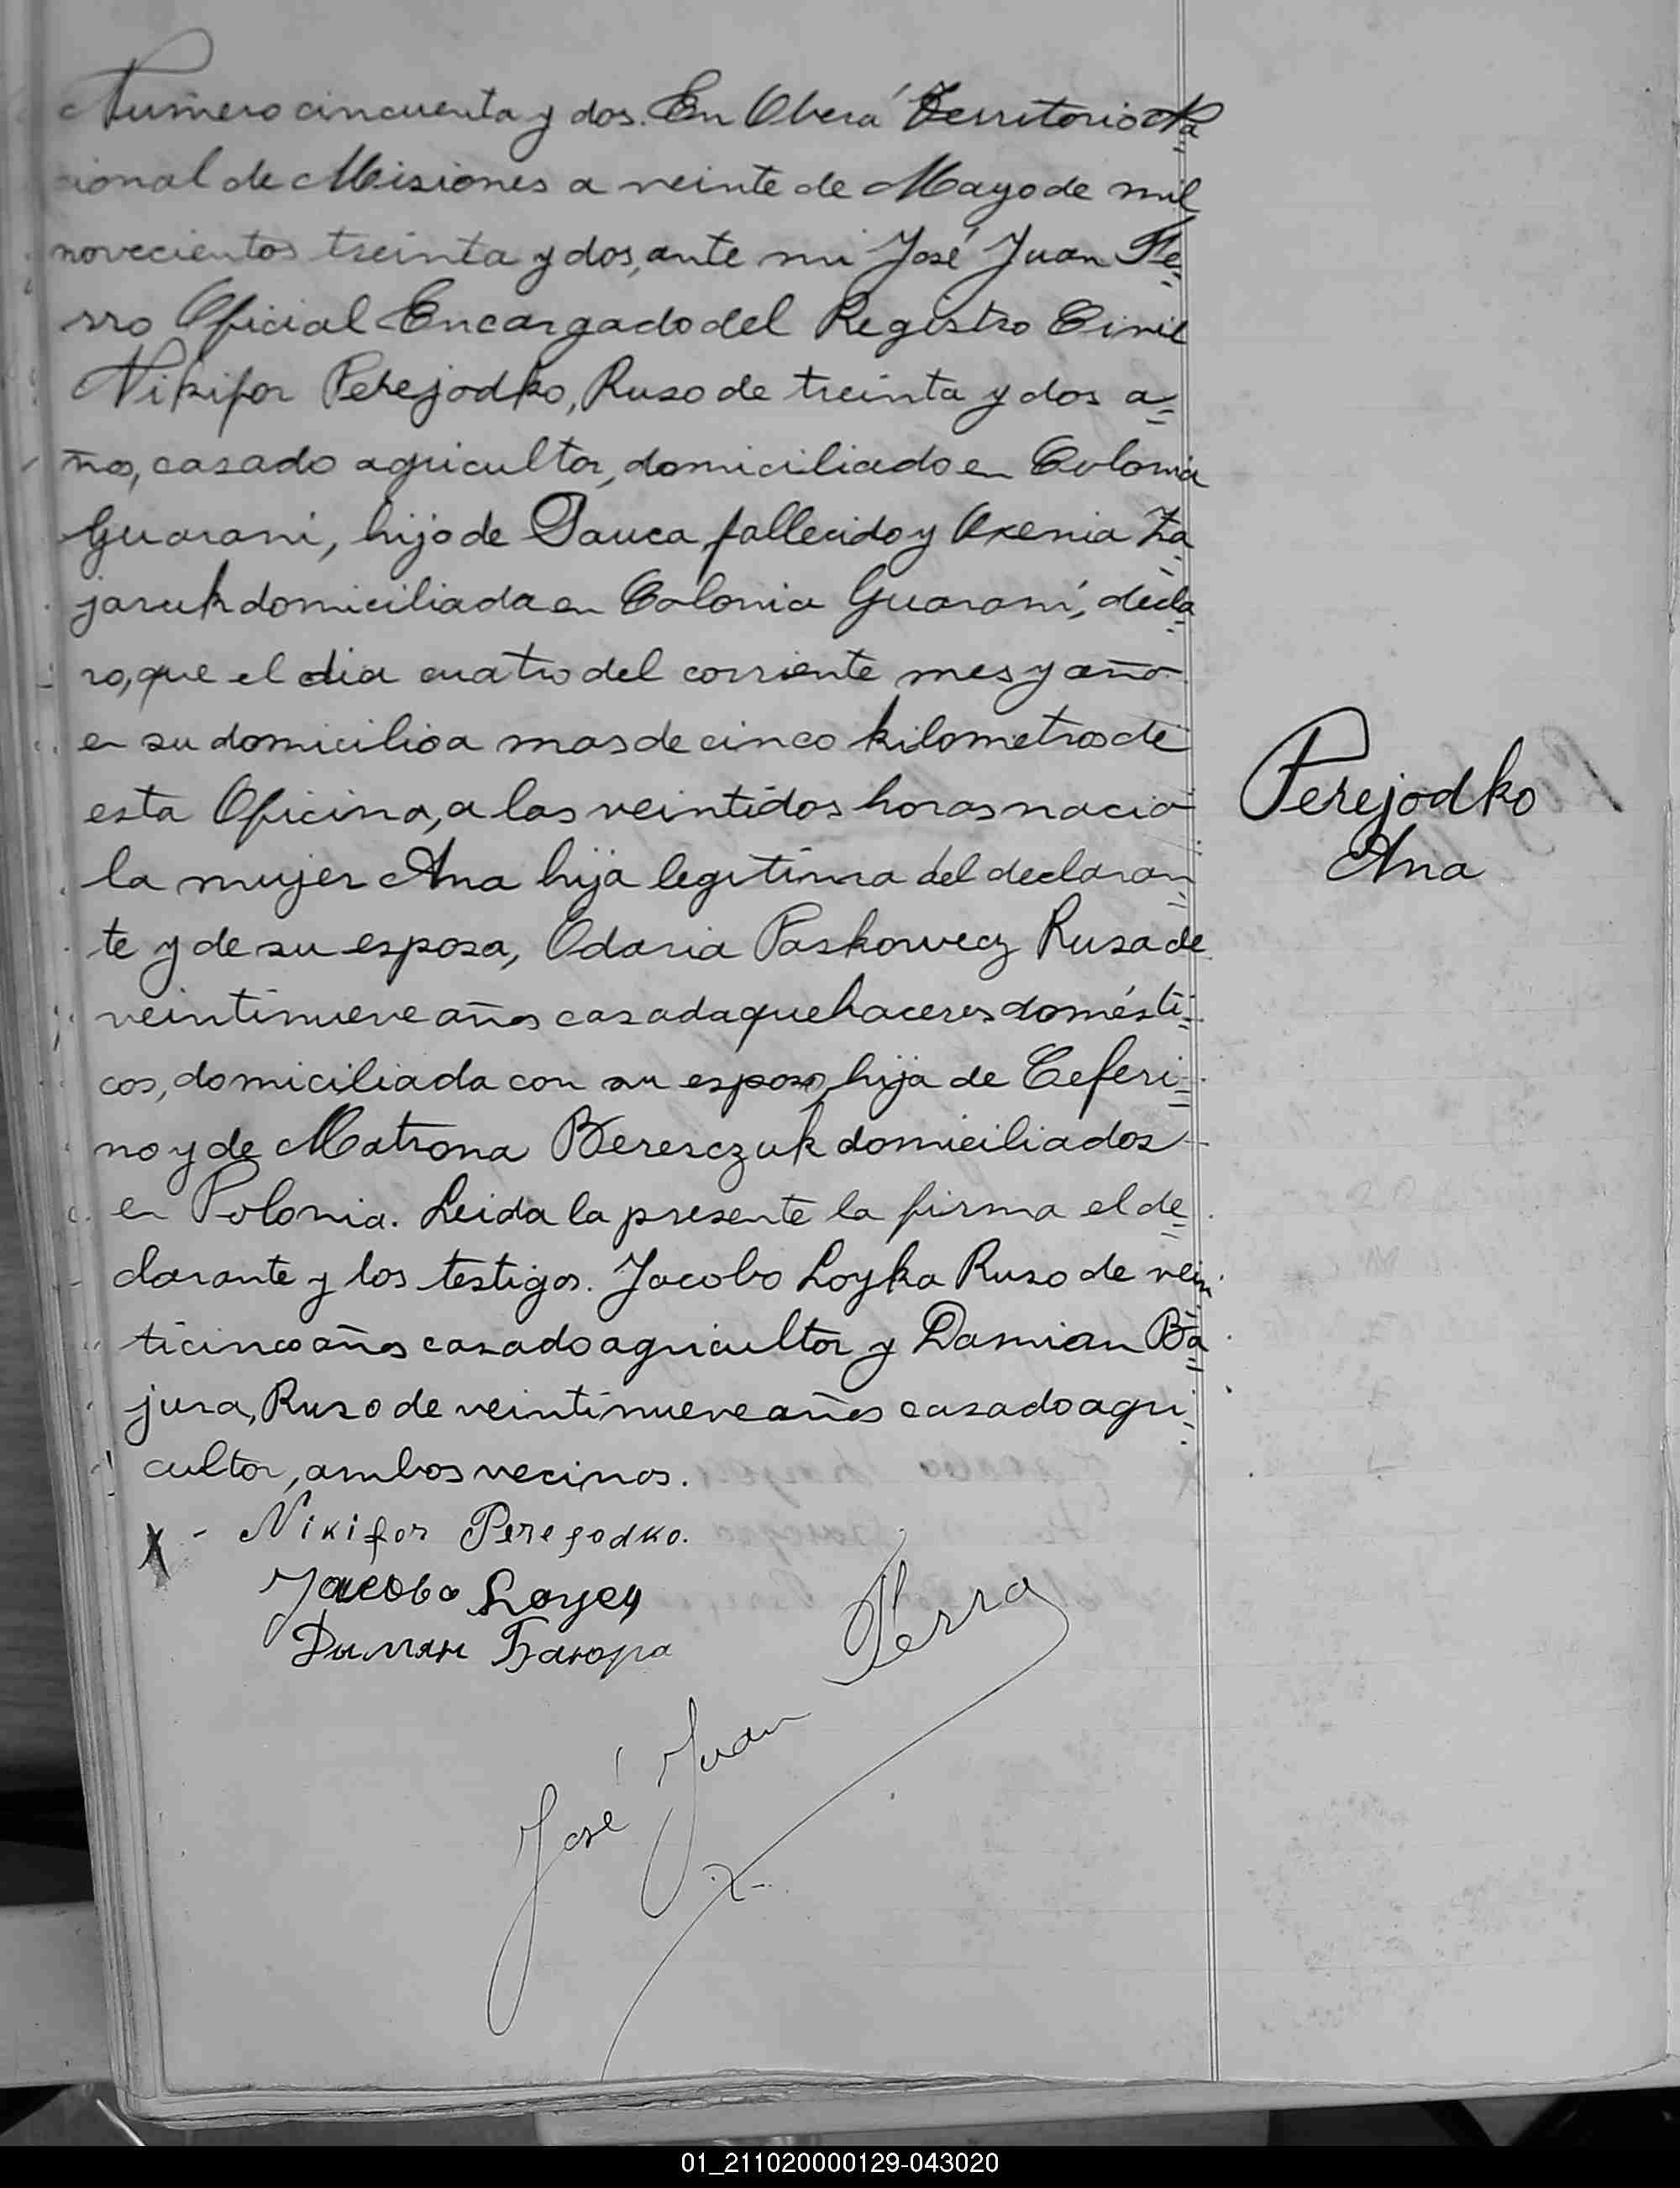 Numero cincuenta y dos. En Oberá Territorio Na=
cional de Misiones a veinte de Mayo de mil
novecientos treinta y dos, ante mi José Juan Fe=
rro Oficial Encargado del Registro Civil
Nikifor Perejodko, Ruso de treinta y dos a=
ños, casado agricultor, domiciliado en Colonia
Guarani, hijo de Sauca fallecido y Oxenia Za=
jaruk domiciliada en Colonia Guaraní, decla=
ro, que el dia cuatro del corriente mes y año
en su domicilio a mas de cinco kilometros de
esta Oficina, a las veintidos horas nació
la mujer Ana hija legitima del declaran=
te y de su esposa, Odaria Paskowecz Rusa de
veintinueve años casada quehaceres domésti=
cos, domiciliada con su esposo, hija de Ceferi=
no y de Matrona Beresczuk domiciliados
en Polonia. Leida la presente la firma el de=
clarante y los testigos. Jacobo Loyka Ruso de vein=
ticinco años casado agricultor y Damian Ba=
jura, Ruso de veintinueve años casado agri=
cultor, ambos vecinos.
Perejodko
Ana
X - Nikifor Perejodko.
Jacobo
Баюра
José Juan Ferro
01_211020000129-043020